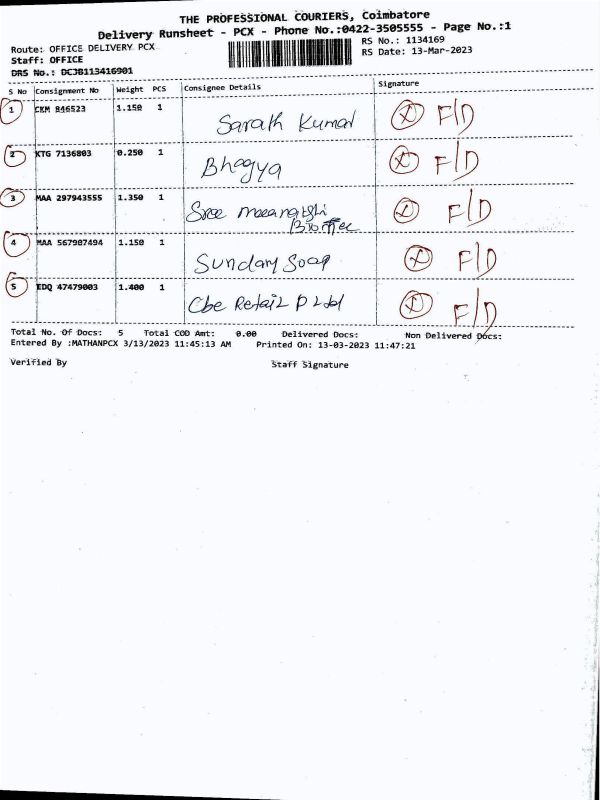 THE PROFESSIONAL COURIERS, Coimbatore
Delivery Runsheet - PCX - Phone No.:0422-3505555 - Page No.:1
Route: OFFICE DELIVERY PCX
RS No.: 1134169
Staff: OFFICE
RS Date: 13-Mar-2023
DRS No.: DCJB113416901
S No Consignment No Weight PCS Consignee Details Signature
1 CKM 846523 1.150 1 Sarath Kumar F/D
2 KTG 7136803 0.250 1 Bhagya F/D
3 MAA 297943555 1.350 1 Sree F/D
4 MAA 567907494 1.150 1 Sundary Soap F/D
5 EDQ 47479003 1.400 1 Cbe Retail P Ltd F/D
Total No. Of Docs: 5 Total COD Amt: 0.00 Delivered Docs: Non Delivered Docs:
Entered By :MATHANPCX 3/13/2023 11:45:13 AM Printed On: 13-03-2023 11:47:21
Verified By Staff Signature